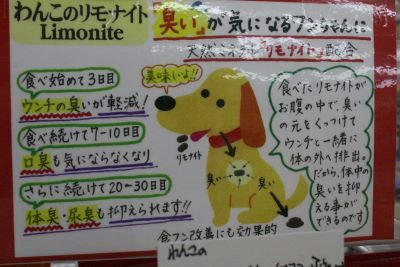 わんこのリモ・ナイト
Limonite
「臭い」が気になるワンちゃんに
天然ミネラル「リモナイト」配合
食べ始めて3日目
ウンチの臭いが軽減!
食べ続けて7-10日目
口臭も気にならなくなり
さらに続けて20-30日目
体臭・尿臭も抑えられます!!
美味いよ!!
リモナイト
臭い
臭い
食べたリモナイトが
お腹の中で臭い
の元をくっつけて
ウンチと一緒に
体の外へ排出。
だから、体中の
臭いを抑え
る事が
できるのです
食フン改善にも効果的
わんこの